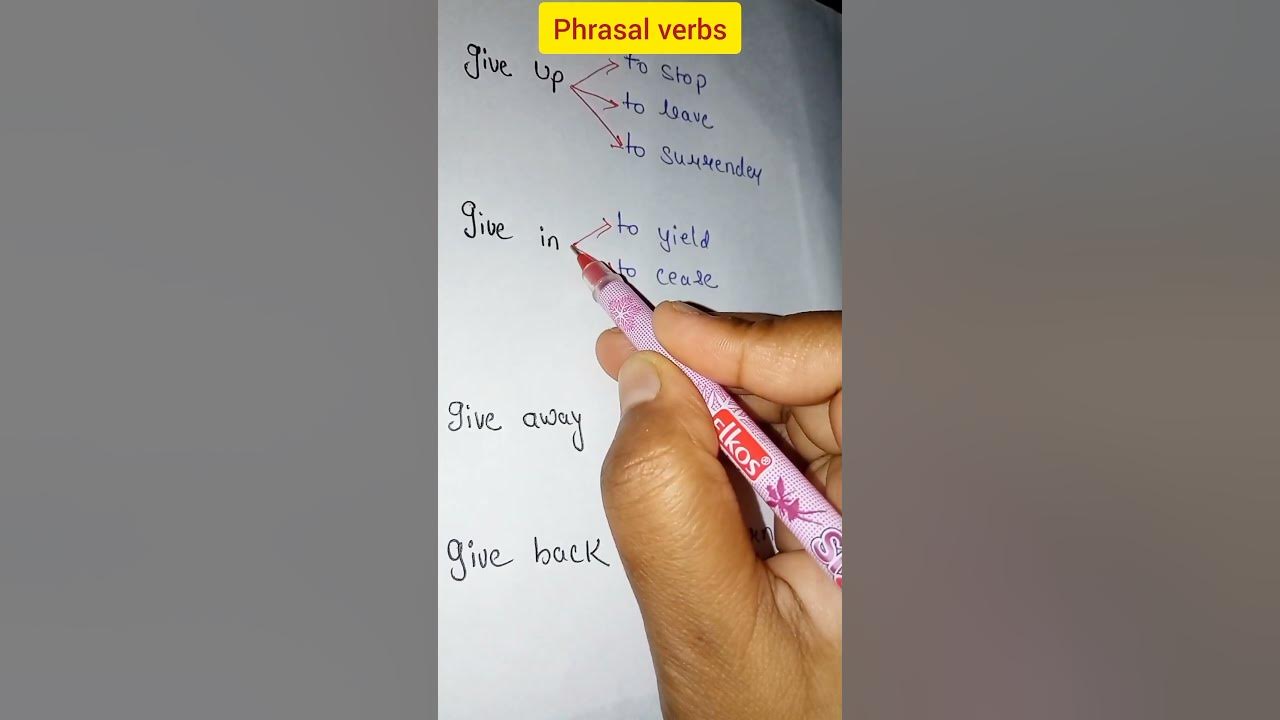 Phrasal verbs
give up
to stop
to leave
to surrender
give in
to yield
to cease
give away
give back
elkos